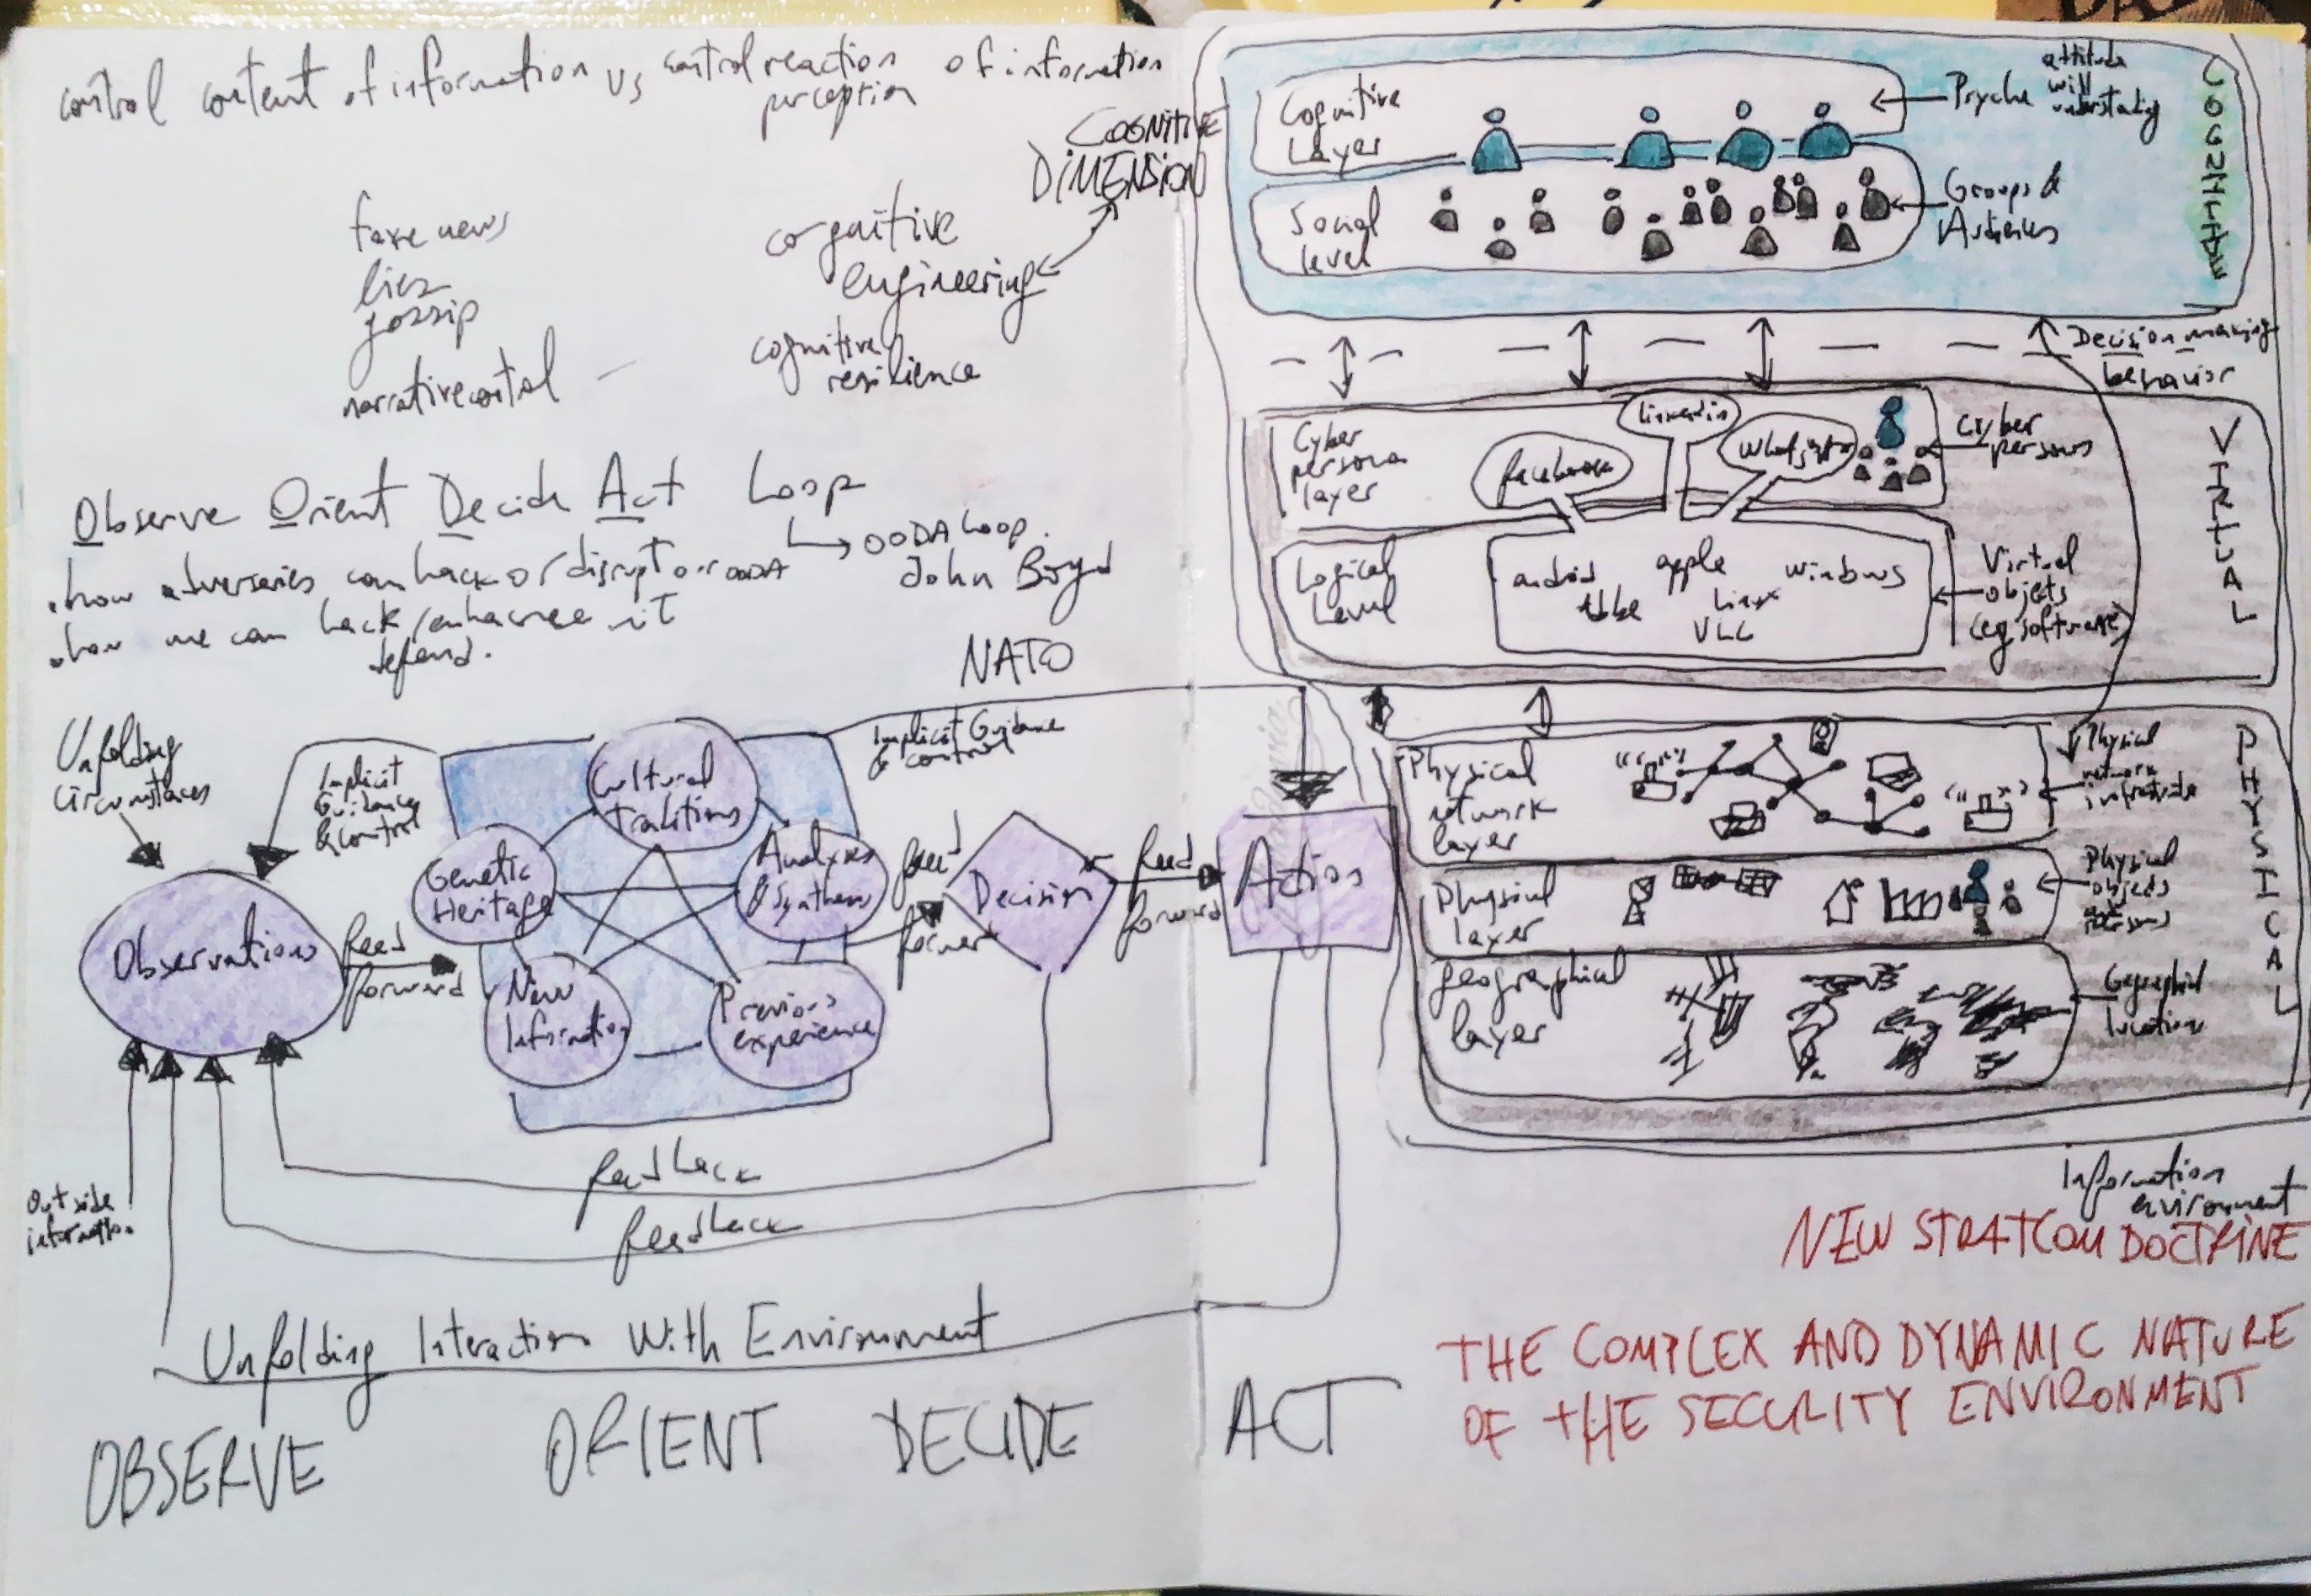 control content of information vs control reaction of information
perception
COGNITIVE
DIMENSION
fake news
lies
gossip
narrative control
cognitive
engineering
cognitive
resilience
Observe Orient Decide Act Loop
OODA Loop
John Boyd
. how adversaries can hack or disrupt our OODA
. how we can hack/enhacnee it
defend.
NATO
Unfolding
Circumstances
Implicit
Guidance
& Control
Implicit Guidance
& control
Cultural
traditions
Genetic
Heritage
Analyses
& Synthesis
New
Information
Previous
experience
Observations
feed
forward
feed
forward
Decision
feed
forward
Action
feedback
feedback
Outside
information
Unfolding Interaction With Environment
OBSERVE ORIENT DECIDE ACT
Cognitive
Layer
Psyche
attitude
will
understanding
Social
level
Groups &
Audiences
COGNITIVE
Decision making
behavior
Cyber
persona
layer
facebook
linkedin
WhatsApp
Cyber
persons
Logical
Level
android
apple
windows
linux
VLC
Virtual
objects
(eg software)
VIRTUAL
Physical
network
layer
Physical
network
infrastructure
Physical
layer
Physical
objects
geographical
layer
Geographical
location
PHYSICAL
Information
environment
NEW STRATCOM DOCTRINE
THE COMPLEX AND DYNAMIC NATURE
OF THE SECURITY ENVIRONMENT